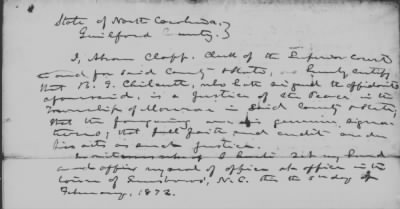 State of North Carolina, }
Guilford County. }
I, Abram Clapp, Clerk of the Superior Court
in and for said County & State, do hereby certify
that B. G. Chilcutt, who has signed the affidavits
aforesaid, is a Justice of the Peace in the
Township of Monroe in said County & State,
that the foregoing are his genuine signa
tures, that full faith and credit are due
his acts as such Justice.
In witness whereof I have set my hand
and affix my seal of office at office in the
town of Greensboro, N.C. this the day of
February, 1873.